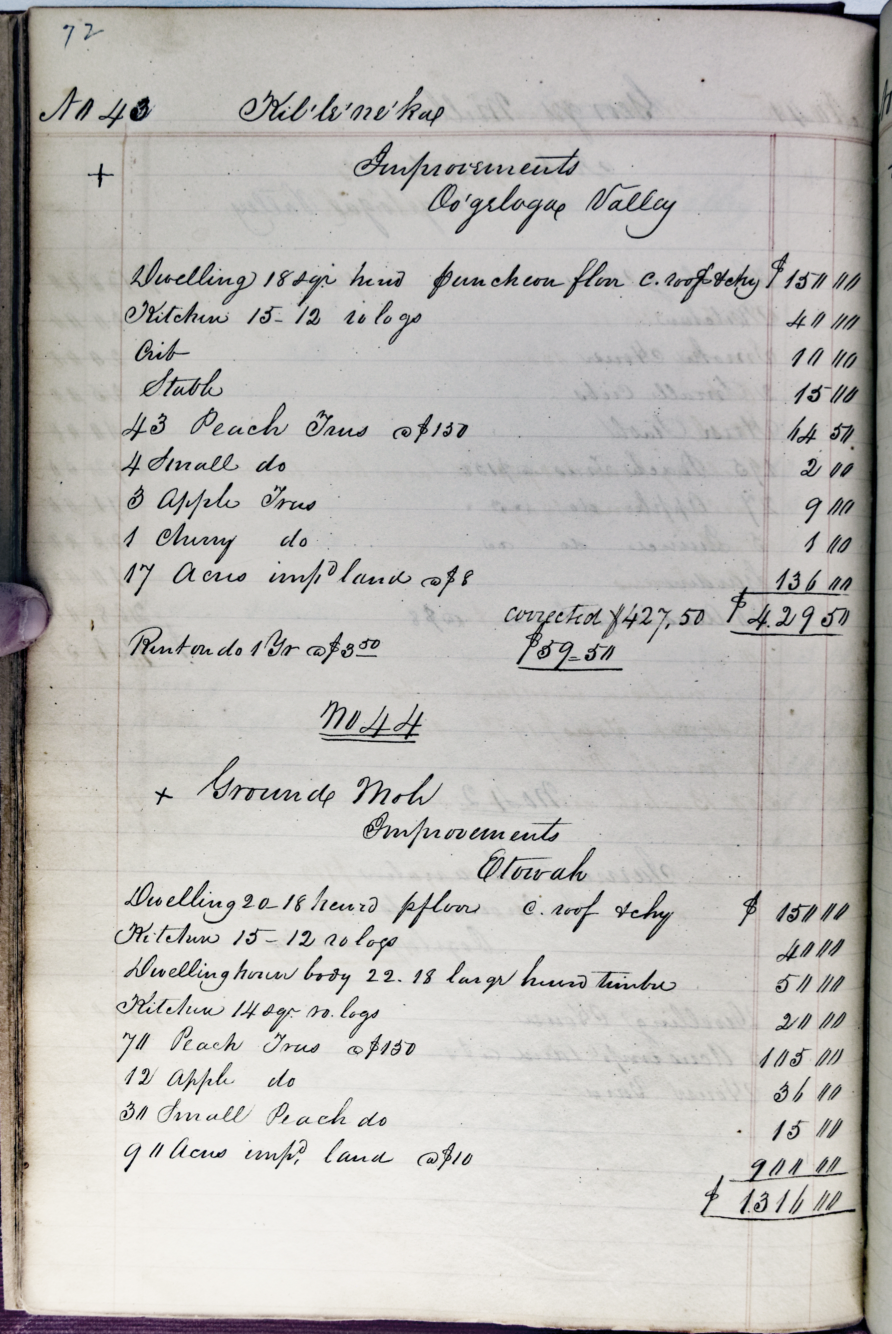 72
No 43 Kil'le'ne'kae
+ Improvements
Oo'geloga Valley
Dwelling 18 sqr hewd puncheon floor c. roof & chy $ 150 00
Kitchen 15-12 ro logs 40 00
Crib 10 00
Stable 15 00
43 Peach Trees @ $150 64 50
4 Small do 2 00
3 Apple Trees 9 00
1 Cherry do 1 00
17 Acres impd land @ $8 136 00
corrected $427,50 $ 429 50
Rent on do 1 Yr @ $3 50 $59-50
No 44
+ Grounde Mole
Improvements
Etowah
Dwelling 20-18 hewed pfloor c. roof & chy $ 150 00
Kitchen 15-12 ro logs 40 00
Dwelling house body 22.18 large hewed timber 50 00
Kitchen 14 sqr. ro. logs 20 00
70 Peach Trees @ $150 105 00
12 Apple do 36 00
30 Small Peach do 15 00
90 Acres impd, land @ $10 900 00
$ 1316 00